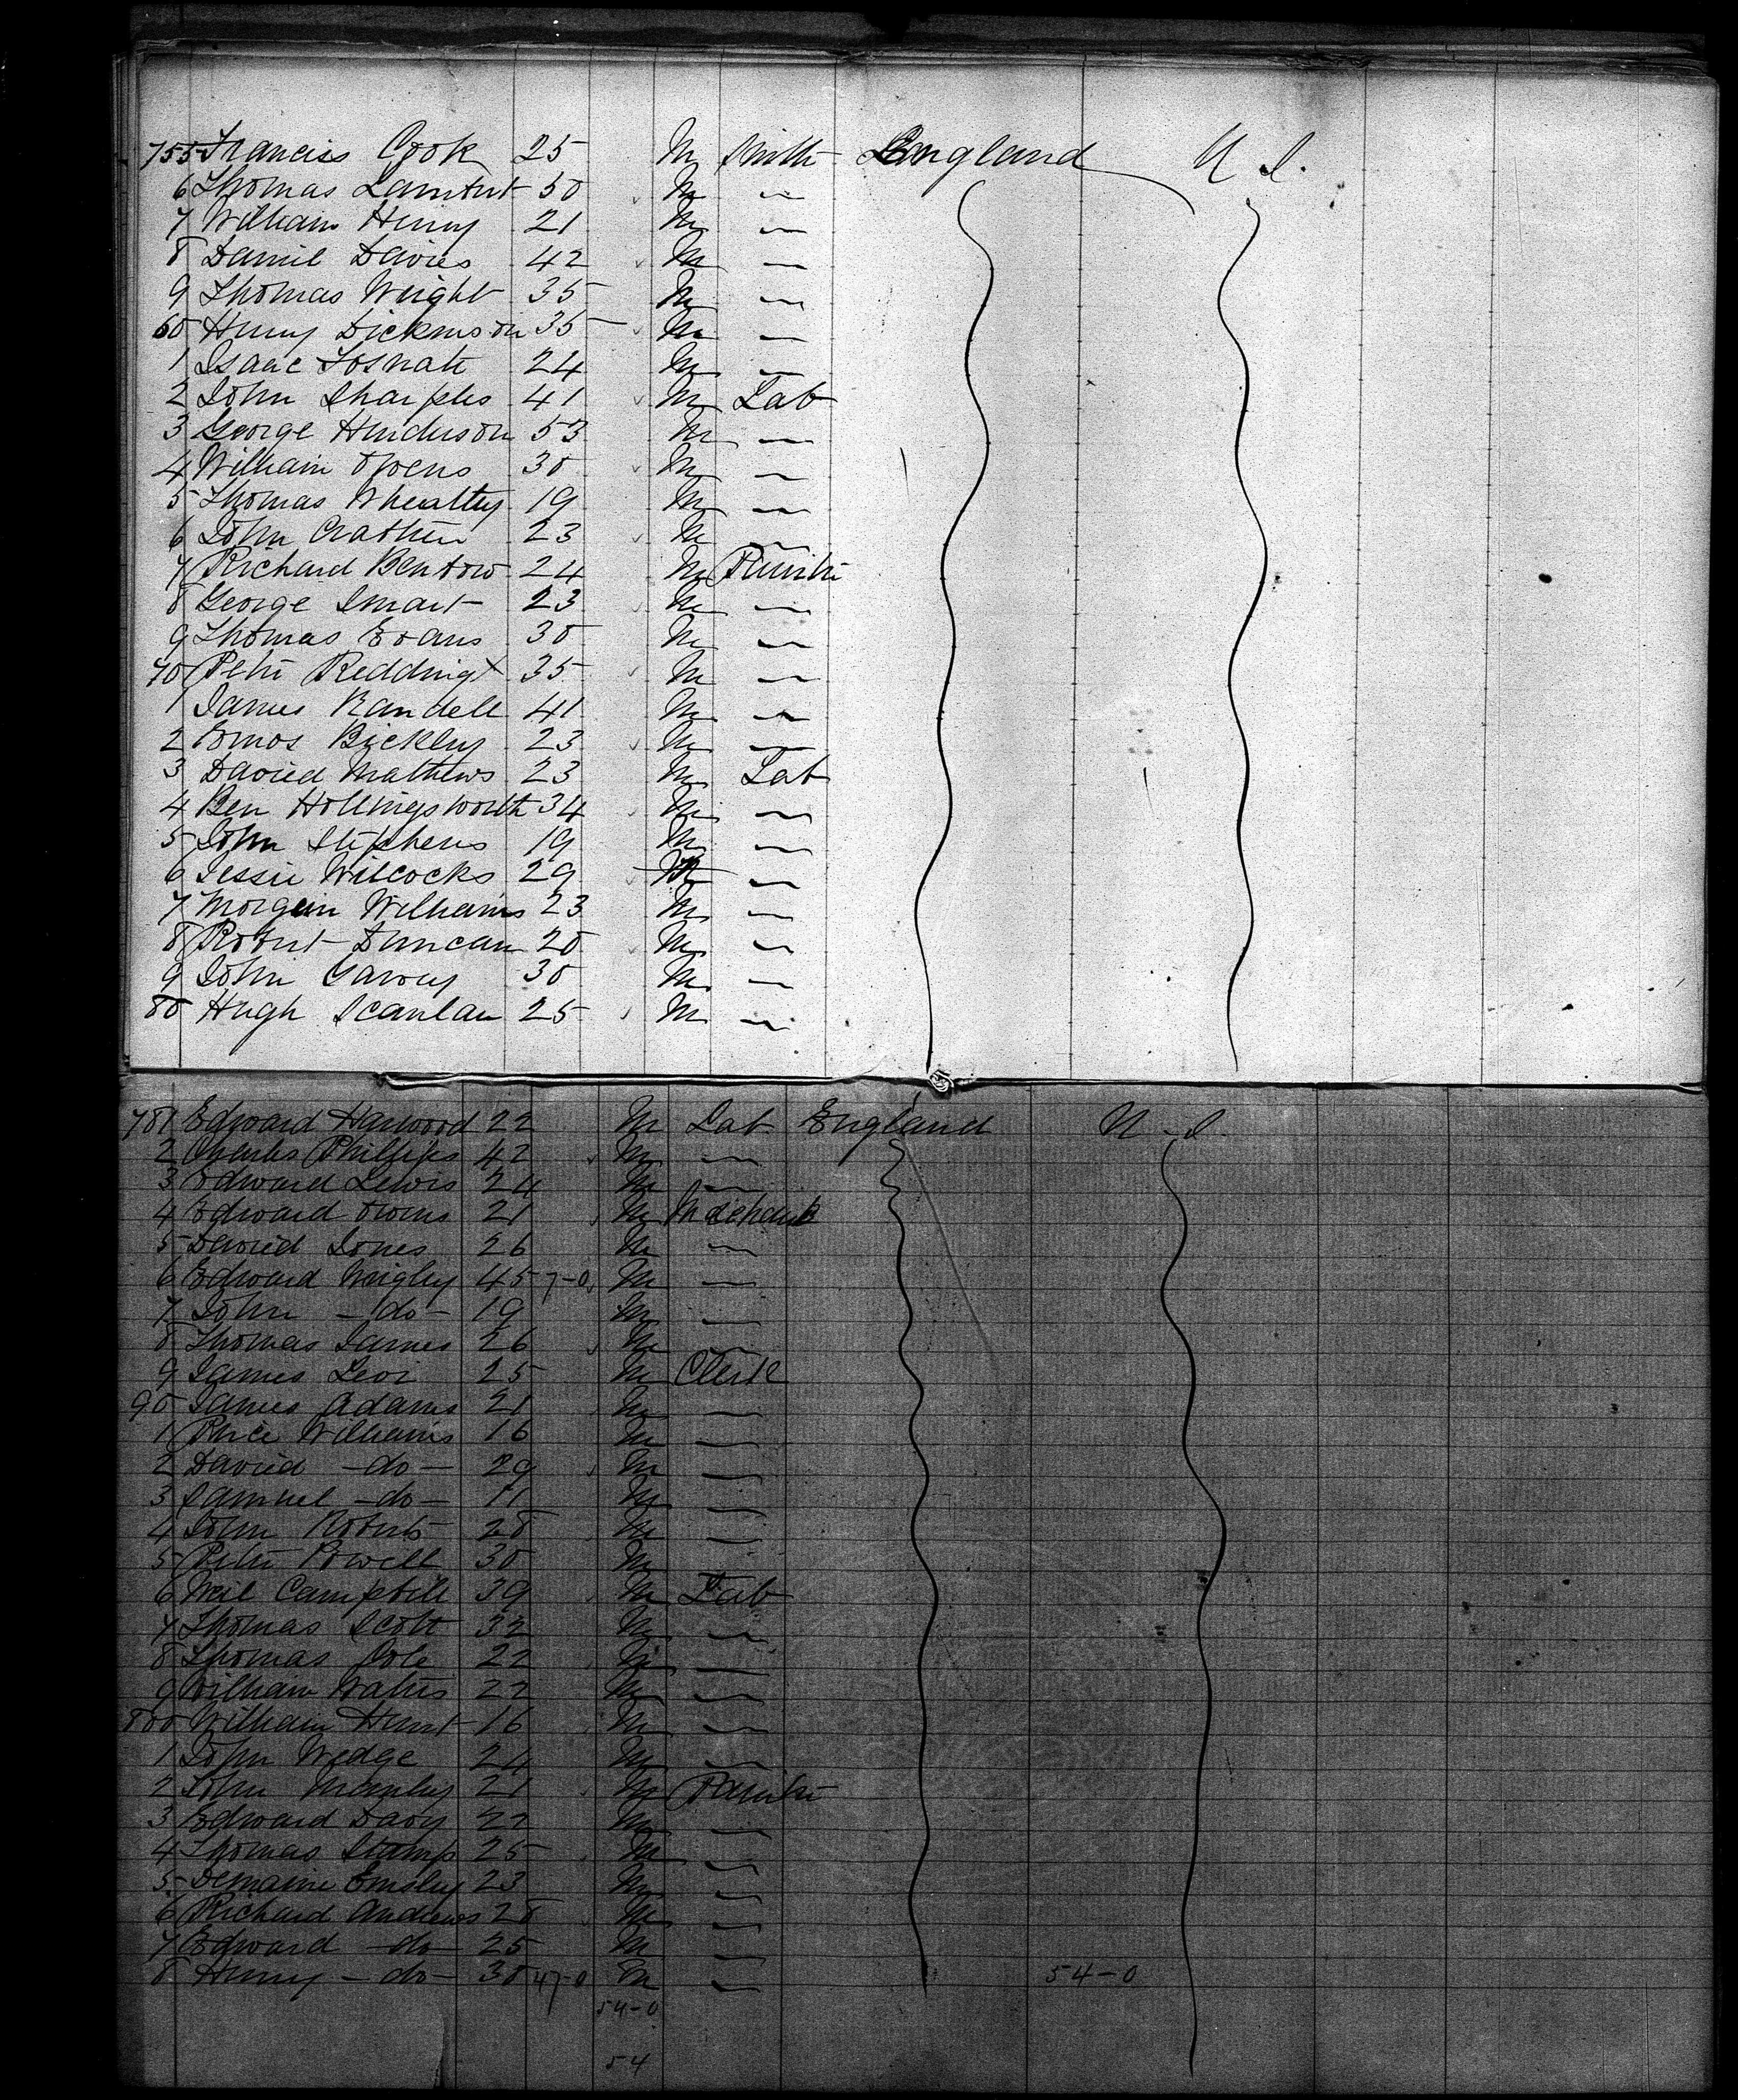 755 Francis Cook 25 M Smith England U S.
6 Thomas Lambert 50 M —
7 William Henry 21 M —
8 Daniel Davies 42 M —
9 Thomas Wright 35 M —
60 Henry Dickinson 35 M —
1 Isaac 24 M —
2 John Sharples 41 M Lab
3 George Henderson 53 M —
4 William Owens 30 M —
5 Thomas Wheatley 19 M —
6 John 23 M —
7 Richard Bentow 24 M
8 George Smart 23 M —
9 Thomas Evans 30 M —
70 Peter Reddingt 35 M —
1 James Randell 41 M —
2 Enos Bickley 23 M —
3 David Mathews 23 M Lab
4 Ben Hollingsworth 34 M —
5 John Stephens 19 M —
6 Jessie Wilcocks 29 M —
7 Morgan Williams 23 M —
8 Robert Duncan 20 M —
9 John Garvey 30 M —
80 Hugh Scanlan 25 M —
781 Edward Harwood 22 M Lab England U S
2 Charles Phillips 42 M —
3 Edward Lewis 24 M —
4 Edward Owens 21 M Mechanic
5 David Jones 26 M —
6 Edward Wrigley 45 7-0 M —
7 John -do- 19 M —
8 Thomas James 26 M —
9 James Levi 25 M Clerk
90 James Adams 21 M —
1 Price Williams 16 M —
2 David -do- 29 M —
3 Samuel -do- 11 M —
4 John Roberts 28 M —
5 Peter Powell 30 M —
6 Neil Campbell 39 M Lab
7 Thomas Scott 32 M —
8 Thomas Cole 22 M —
9 William Waters 22 M —
800 William Hunt 16 M —
1 John Wedge 24 M —
2 John Manley 21 M
3 Edward Davy 22 M —
4 Thomas Stamp 25 M —
5 Demaine Emsley 23 M —
6 Richard Andrews 28 M —
7 Edward -do- 25 M —
8 Henry -do- 30 47-0 M — 54-0
54-0
54